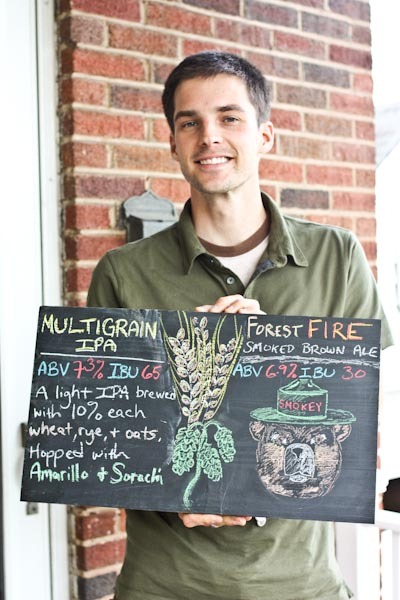 MULTIGRAIN
IPA
ABV 7.3% IBU 65
A light IPA brewed
with 10% each
wheat, rye, + oats.
Hopped with
Amarillo + Sorachi
FOREST FIRE
SMOKED BROWN ALE
ABV 6.9% IBU 30
SMOKEY